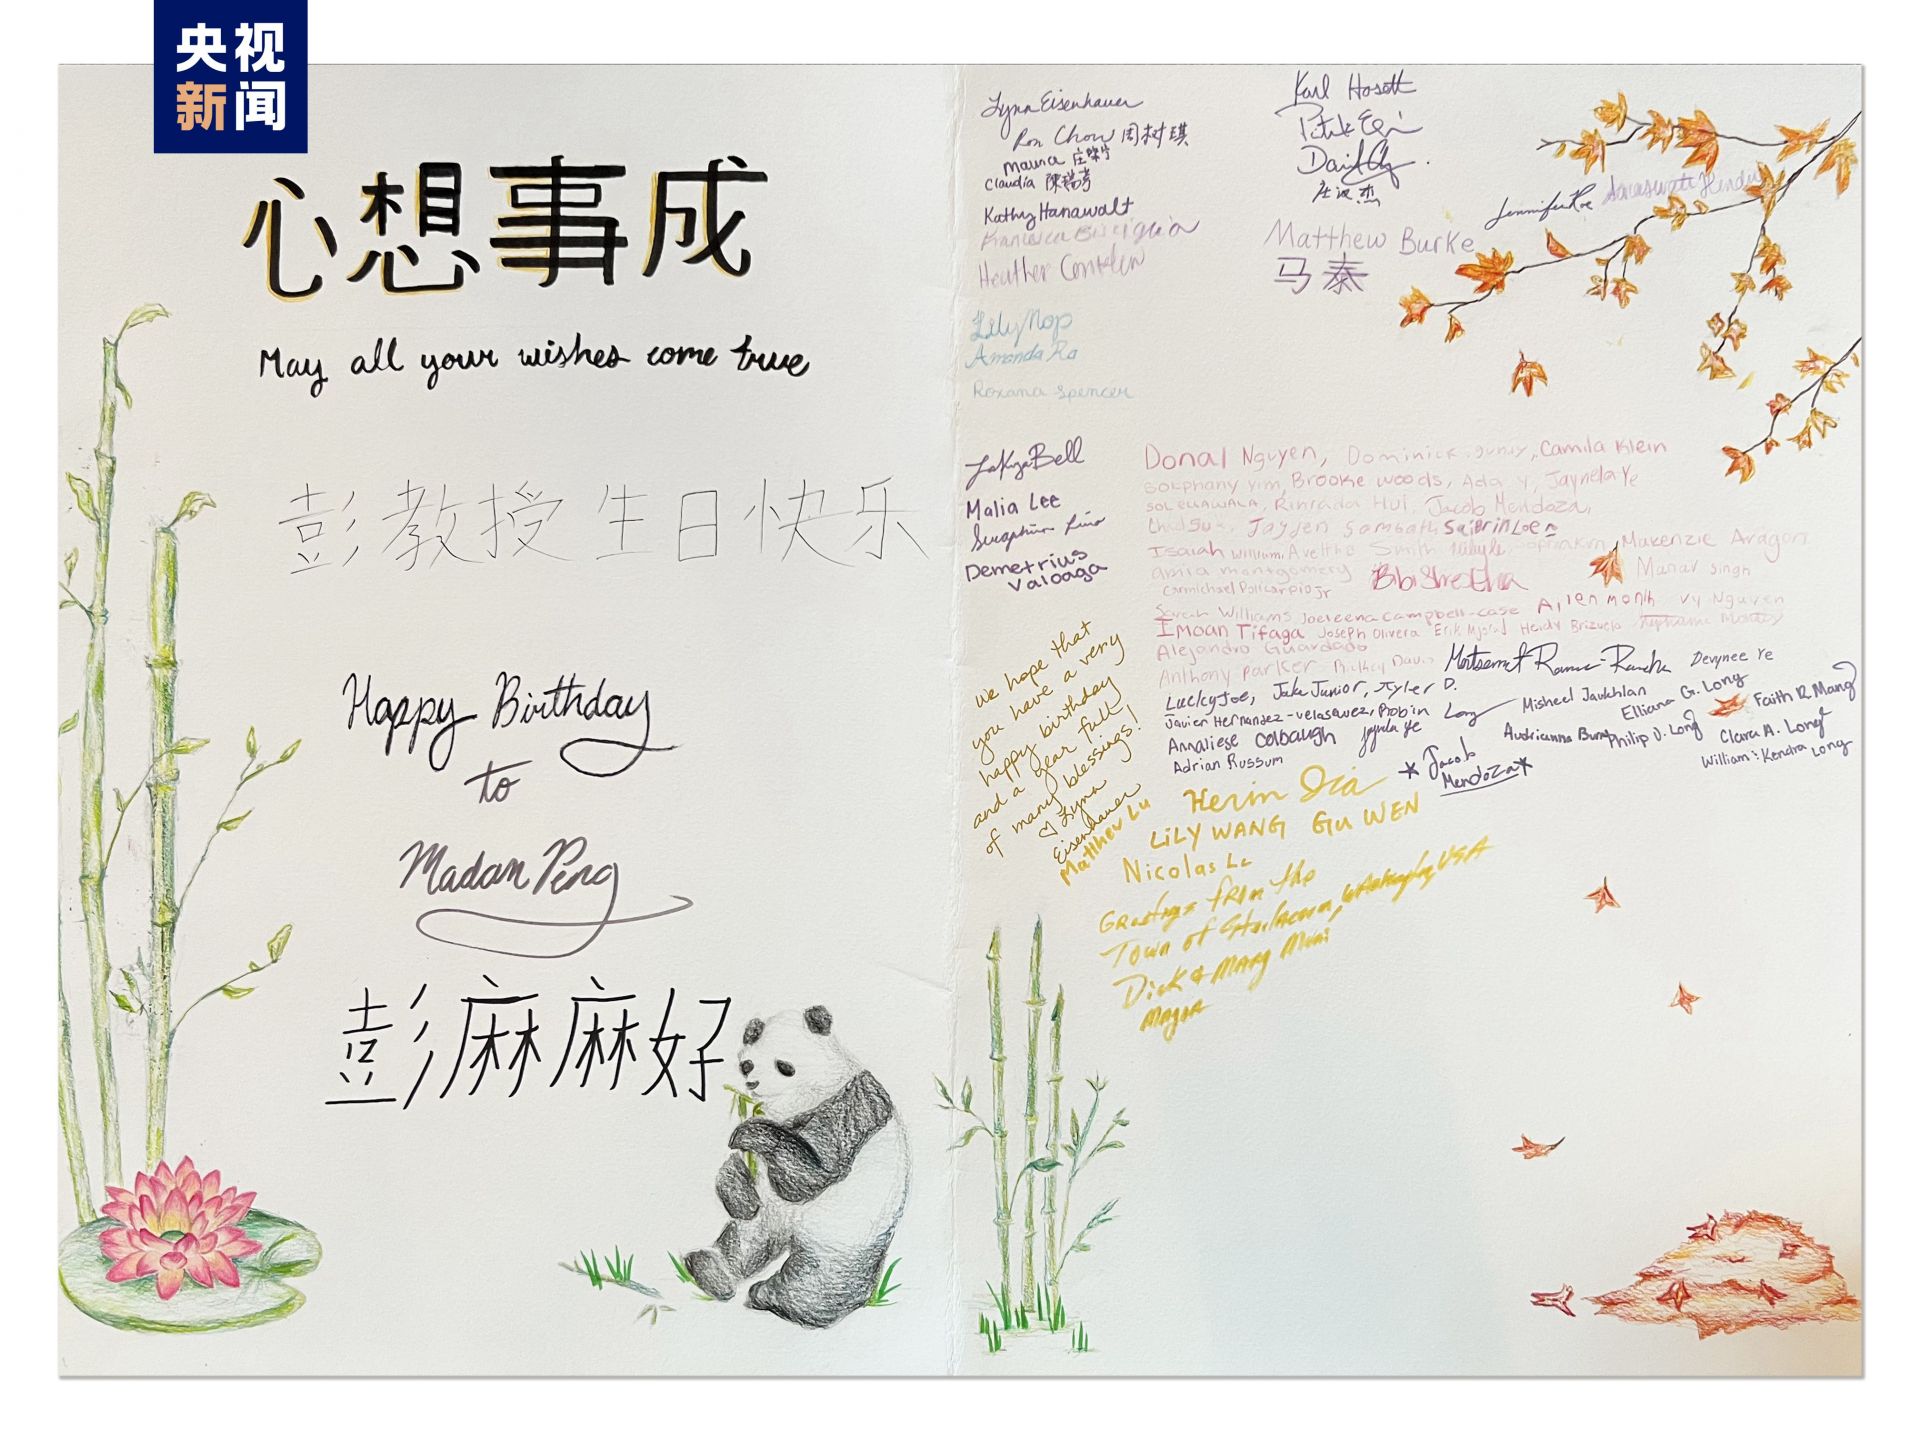 央视
新闻
心想事成
May all your wishes come true
彭教授生日快乐
Happy Birthday
to
Madam Peng
彭麻麻好
Lynn Eisenhauer
Ron Chow 周树琪
Maura
Claudia 陳瑞芳
Kathy Hanawalt
Heather Conklin
Lily Nop
Amanda Ra
Roxana Spencer
Karl Hosett
David
Matthew Burke
马泰
Jennifer Roe
LaKeyaBell
Malia Lee
Demetrius
Valoaga
Donal Nguyen, Dominick Camila Klein
Sokphany Yim, Brooke Woods, Ada Y, Jaynela Ye
Rinrada Hui, Jacob Mendoza,
Jayjen Sambath
Isaiah William, Smith Makenzie Aragon
Amia montgomery Manav Singh
Carmichael Policarpio Jr
Sarah Williams Joeleena Campbell-case Vy Nguyen
Imoan Tifaga Joseph Olivera Heidy Brizuela
Alejandro Guardado
Anthony Parker Devynee Ye
LuckyJoe, Jake Junior, Kyler D.
Javier Hernandez-Velasquez, Robin Long Misheel Jaukhlan Elliana G. Long Faith R. Mang
Annaliese Colbaugh Philip D. Long Clara A. Long
Adrian Russum William & Kendra Long
*Jacob
Mendoza*
we hope that
you have a very
happy birthday
and a year full
of many blessings!
♡ Lynn
Eisenhauer
Matthew Lu
Herin
LiLY WANG GU WEN
Nicolas
Greetings from the
Town of Steilacoom, Washington, USA
Dick & Mary Muri
Mayor